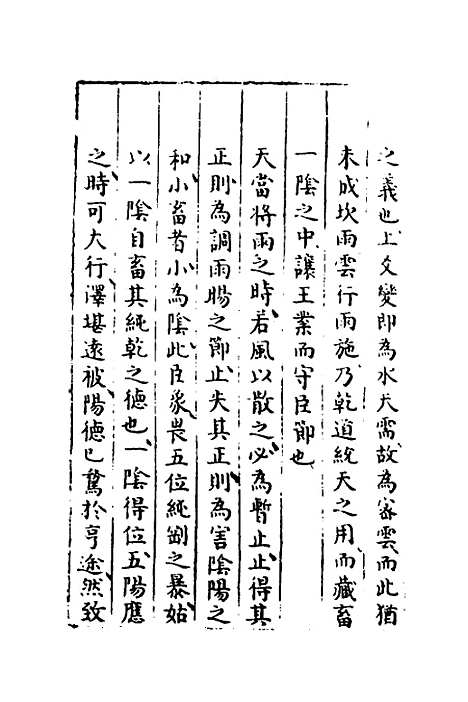 之義也上爻變即為水天需故為密雲而此猶
未成坎雨雲行雨施乃乾道統天之用而藏畜
一陰之中讓王業而守臣節也
天當將雨之時若風以散之必為暫止止得其
正則為調雨暘之節止失其正則為害陰陽之
和小畜者小為陰此臣象畏五位純剛之暴姑
以一陰自畜其純乾之德也一陰得位五陽應
之時可大行澤堪遠被陽德已騖於亨途然致